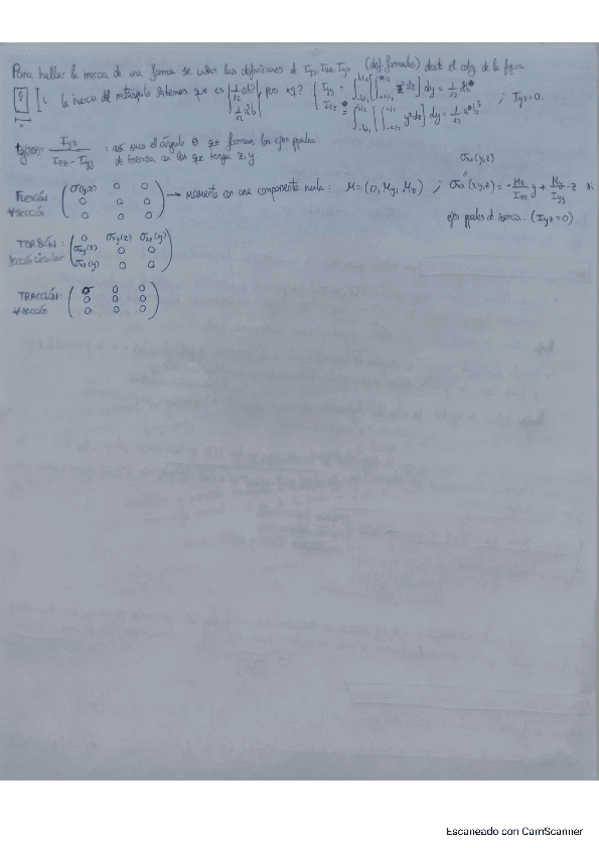 Para hallar la inercia de una forma se usan las definiciones de Iyy, Izz, Iyz (def. formales) desde el cdg de la figura.
la inercia del rectángulo sabemos que es { 1/12 ab³ , 1/12 a³b } pero xq? { Iyy = ∫ [ ∫ z² dz ] dy = 1/12 ; Izz = ∫ [ ∫ y² dz ] dy = 1/12 ; Iyz = 0.
tg(2θ) = Iyz / (Izz - Iyy) : así saco el ángulo θ que forman los ejes ppales
de inercia con los que tenga z, y
σxx(y,z)
FLEXIÓN: ∀ sección ( σ(y,z) 0 0 / 0 0 0 / 0 0 0 ) → Momento con una componente nula: M = (0, My, Mz) ; σxx (x,y,z) = -Mz/Izz y + My/Iyy · z si
ejes ppales de inercia. (Iyz = 0)
TORSIÓN: sección circular ( 0 σxy(z) σxz(y) / σxy(z) 0 0 / σxz(y) 0 0 )
TRACCIÓN: ∀ sección ( σ 0 0 / 0 0 0 / 0 0 0 )
Escaneado con CamScanner